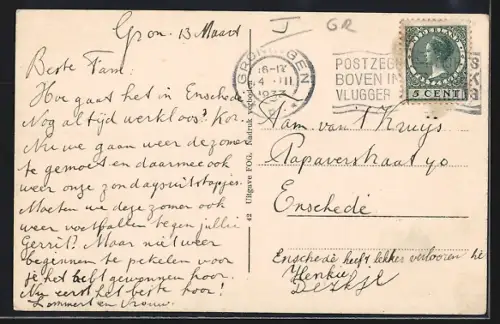 Gron. 13 Maart
J
GR
Beste Fam:
Hoe gaat het in Enschede
Nog altijd werkloos? Kor.
Nu we gaan weer de zomer
te gemoet en daarmee ook
weer onze zondagsuitstapjes.
Moeten we deze zomer ook
weer voetballen tegen jullie
Gerrit? Maar niet weer
beginnen te pekelen voor
je het hebt gewonnen hoor.
Nu eerst het beste hoor!
Lammert en Vrouw.
42 Uitgave FOG. Nadruk verboden
GRONINGEN
POSTZEG
BOVEN IN
VLUGGER
5 CENT
Fam. van 't Kruijs
Papaverstraat 40
Enschedé
Enschedé heeft lekker verlooren hè
Henkie